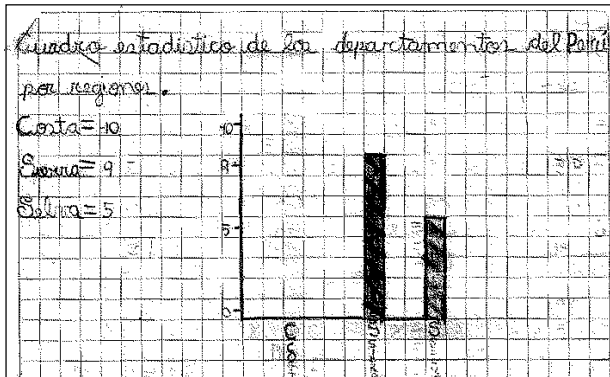 Cuadro estadístico de los departamentos del Perú
por regiones.
Costa = 10
Sierra = 9
Selva = 5
10
9
5
0